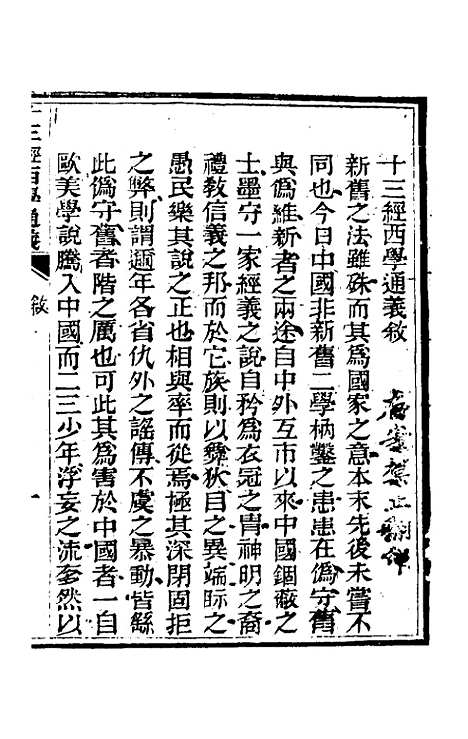 十三經西學通義敘
新舊之法雖殊而其爲國家之意本末先後未嘗不
同也今日中國非新舊二學枘鑿之患患在僞守舊
與僞維新者之兩途自中外互市以來中國錮蔽之
士墨守一家經義之說自矜爲衣冠之胄神明之裔
禮教信義之邦而於它族則以彝狄目之異端眎之
愚民樂其說之正也相與率而從焉極其深閉固拒
之弊則謂邇年各省仇外之謠傳不虞之暴動皆緜
此僞守舊者階之厲也可此其爲害於中國者一自
歐美學說騰入中國而二三少年浮妄之沭奎然以
十三經西學通義
敘
一